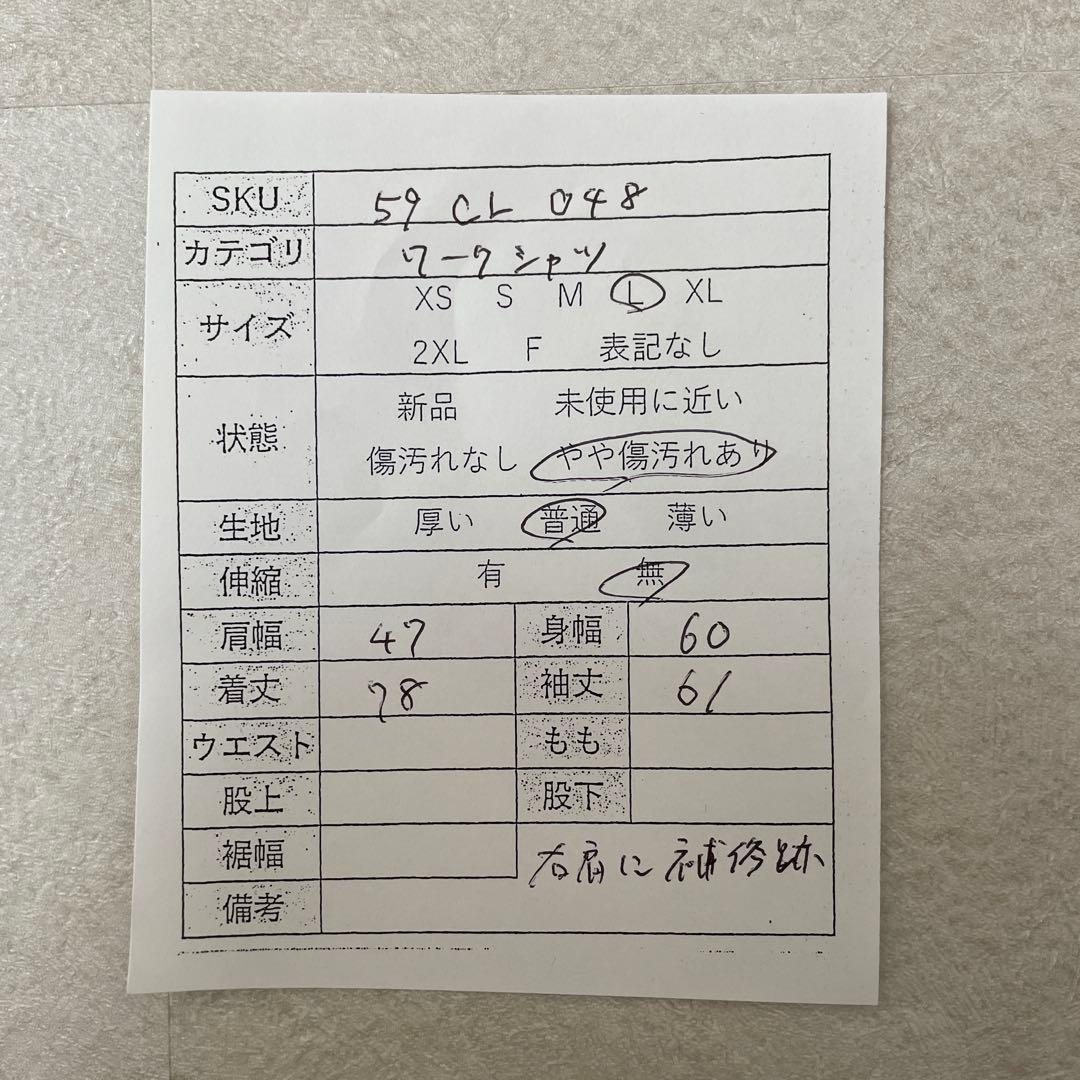 SKU 59 CL 048
カテゴリ ワークシャツ
サイズ XS S M L XL
2XL F 表記なし
状態 新品 未使用に近い
傷汚れなし やや傷汚れあり
生地 厚い 普通 薄い
伸縮 有 無
肩幅 47 身幅 60
着丈 78 袖丈 61
ウエスト もも
股上 股下
裾幅 右肩に補修跡
備考